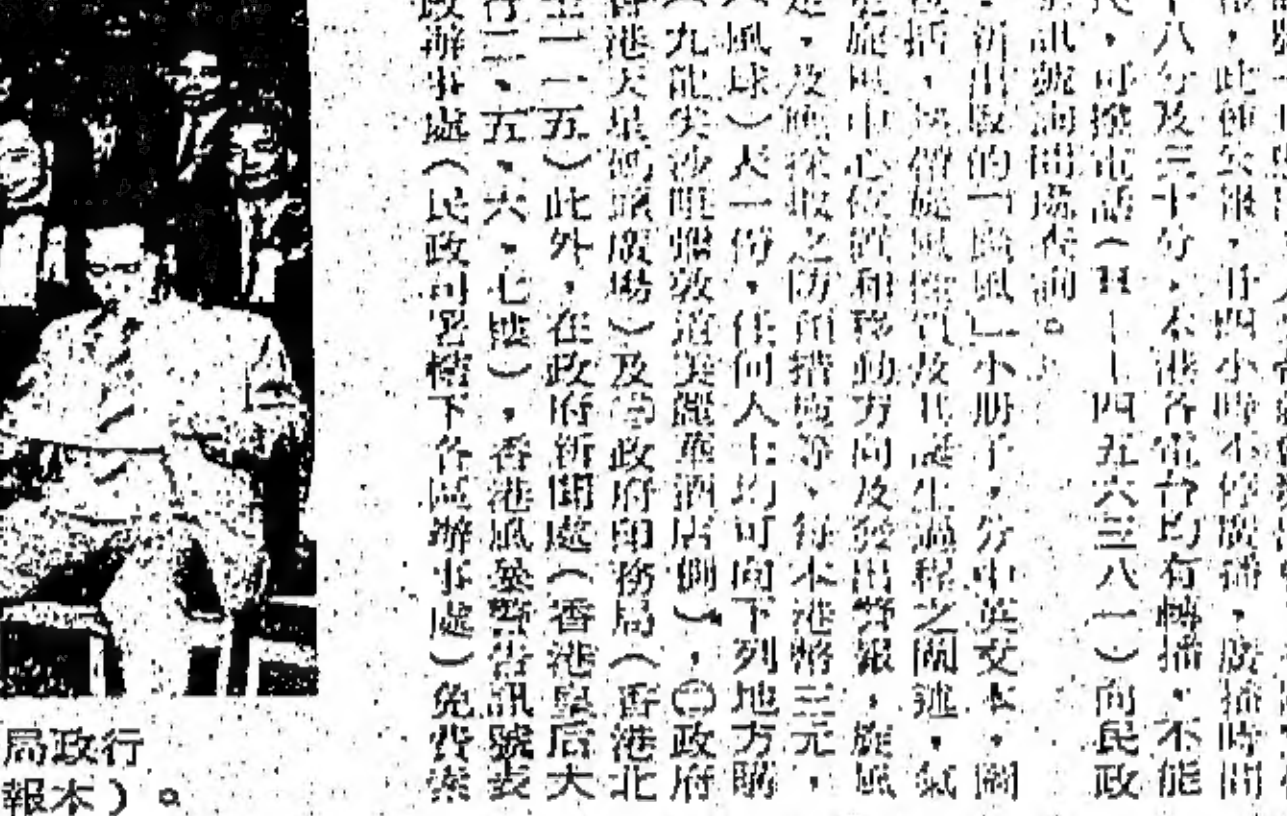 ，此種公報，廿四小時不停廣播，廣播時間
十八分及三十分，本港各電台均有轉播。不能
，可撥電話（H 四五六三八一）向民政
訊號詢問處查詢。
，新出版的「颶風」小冊子，分中英文本，關
括，熱帶旋風性質及其誕生過程之闡述，氣
旋風中心位置和移動方向及發出警報，旋風
，及應採取之防預措施等，每本港幣三元，
（風球）表一份，任何人士均可向下列地方購
（九龍尖沙咀彌敦道美麗華酒店側），㊁政府
香港天星碼頭廣場）及㊂政府印務局（香港北
一一五）此外，在政府新聞處（香港皇后大
行二，五，六，七樓），香港風暴警告訊號表
政辦事處（民政司署轄下各區辦事處）免費索
局政行
報本）。